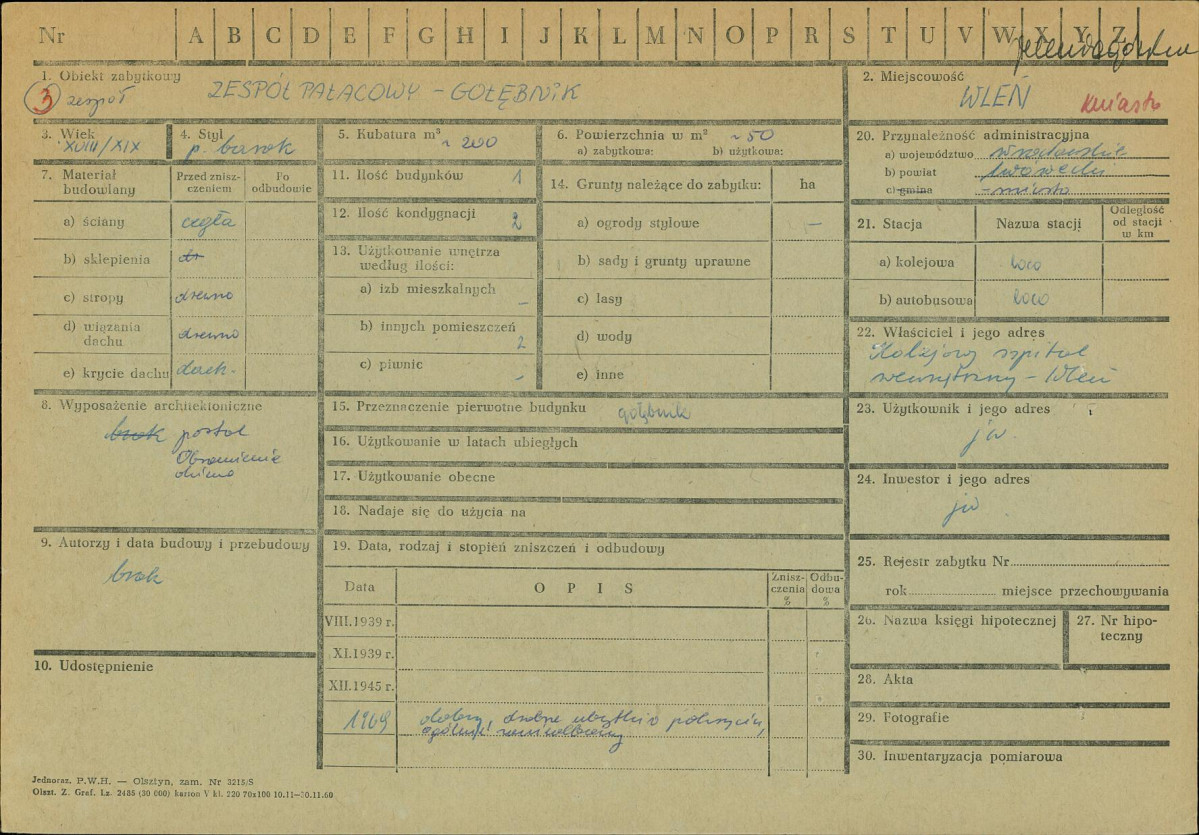 Nr A B C D E F G H I J K L M N O P R S T U V W X Y Z
1. Obiekt zabytkowy
3 zespół ZESPÓŁ PAŁACOWY – GOŁĘBNIK
2. Miejscowość
WLEŃ
miasto
3. Wiek
XVIII/XIX
4. Styl
p. barok
5. Kubatura m³ ~ 200
6. Powierzchnia w m² ~ 50
a) zabytkowa: b) użytkowa:
7. Materiał budowlany
Przed zniszczeniem
Po odbudowie
a) ściany cegła
b) sklepienia
c) stropy drewno
d) wiązania dachu drewno
e) krycie dachu dach.
8. Wyposażenie architektoniczne
brak portal
Obramienia
okienne
9. Autorzy i data budowy i przebudowy
brak
10. Udostępnienie
11. Ilość budynków 1
12. Ilość kondygnacji 2
13. Użytkowanie wnętrza według ilości:
a) izb mieszkalnych –
b) innych pomieszczeń 2
c) piwnic –
14. Grunty należące do zabytku: ha
a) ogrody stylowe –
b) sady i grunty uprawne
c) lasy
d) wody
e) inne
15. Przeznaczenie pierwotne budynku gołębnik
16. Użytkowanie w latach ubiegłych
17. Użytkowanie obecne
18. Nadaje się do użycia na
19. Data, rodzaj i stopień zniszczeń i odbudowy
Data O P I S Zniszczenia % Odbudowa %
VIII.1939 r.
XI.1939 r.
XII.1945 r.
1969 dobry, drobne ubytki w pokryciu,
ogólnie
20. Przynależność administracyjna
a) województwo wrocławskie
b) powiat lwówecki
c) gmina – miasto
21. Stacja Nazwa stacji Odległość od stacji w km
a) kolejowa loco
b) autobusowa loco
22. Właściciel i jego adres
Kolejowy szpital
wewnętrzny – Wleń
23. Użytkownik i jego adres
jw.
24. Inwestor i jego adres
jw
25. Rejestr zabytku Nr
rok miejsce przechowywania
26. Nazwa księgi hipotecznej
27. Nr hipoteczny
28. Akta
29. Fotografie
30. Inwentaryzacja pomiarowa
Jednoraz. P.W.H. — Olsztyn, zam. Nr 3215/S
Olszt. Z. Graf. Lz. 2486 (30 000) karton V kl. 220 70x100 10.11—30.11.60